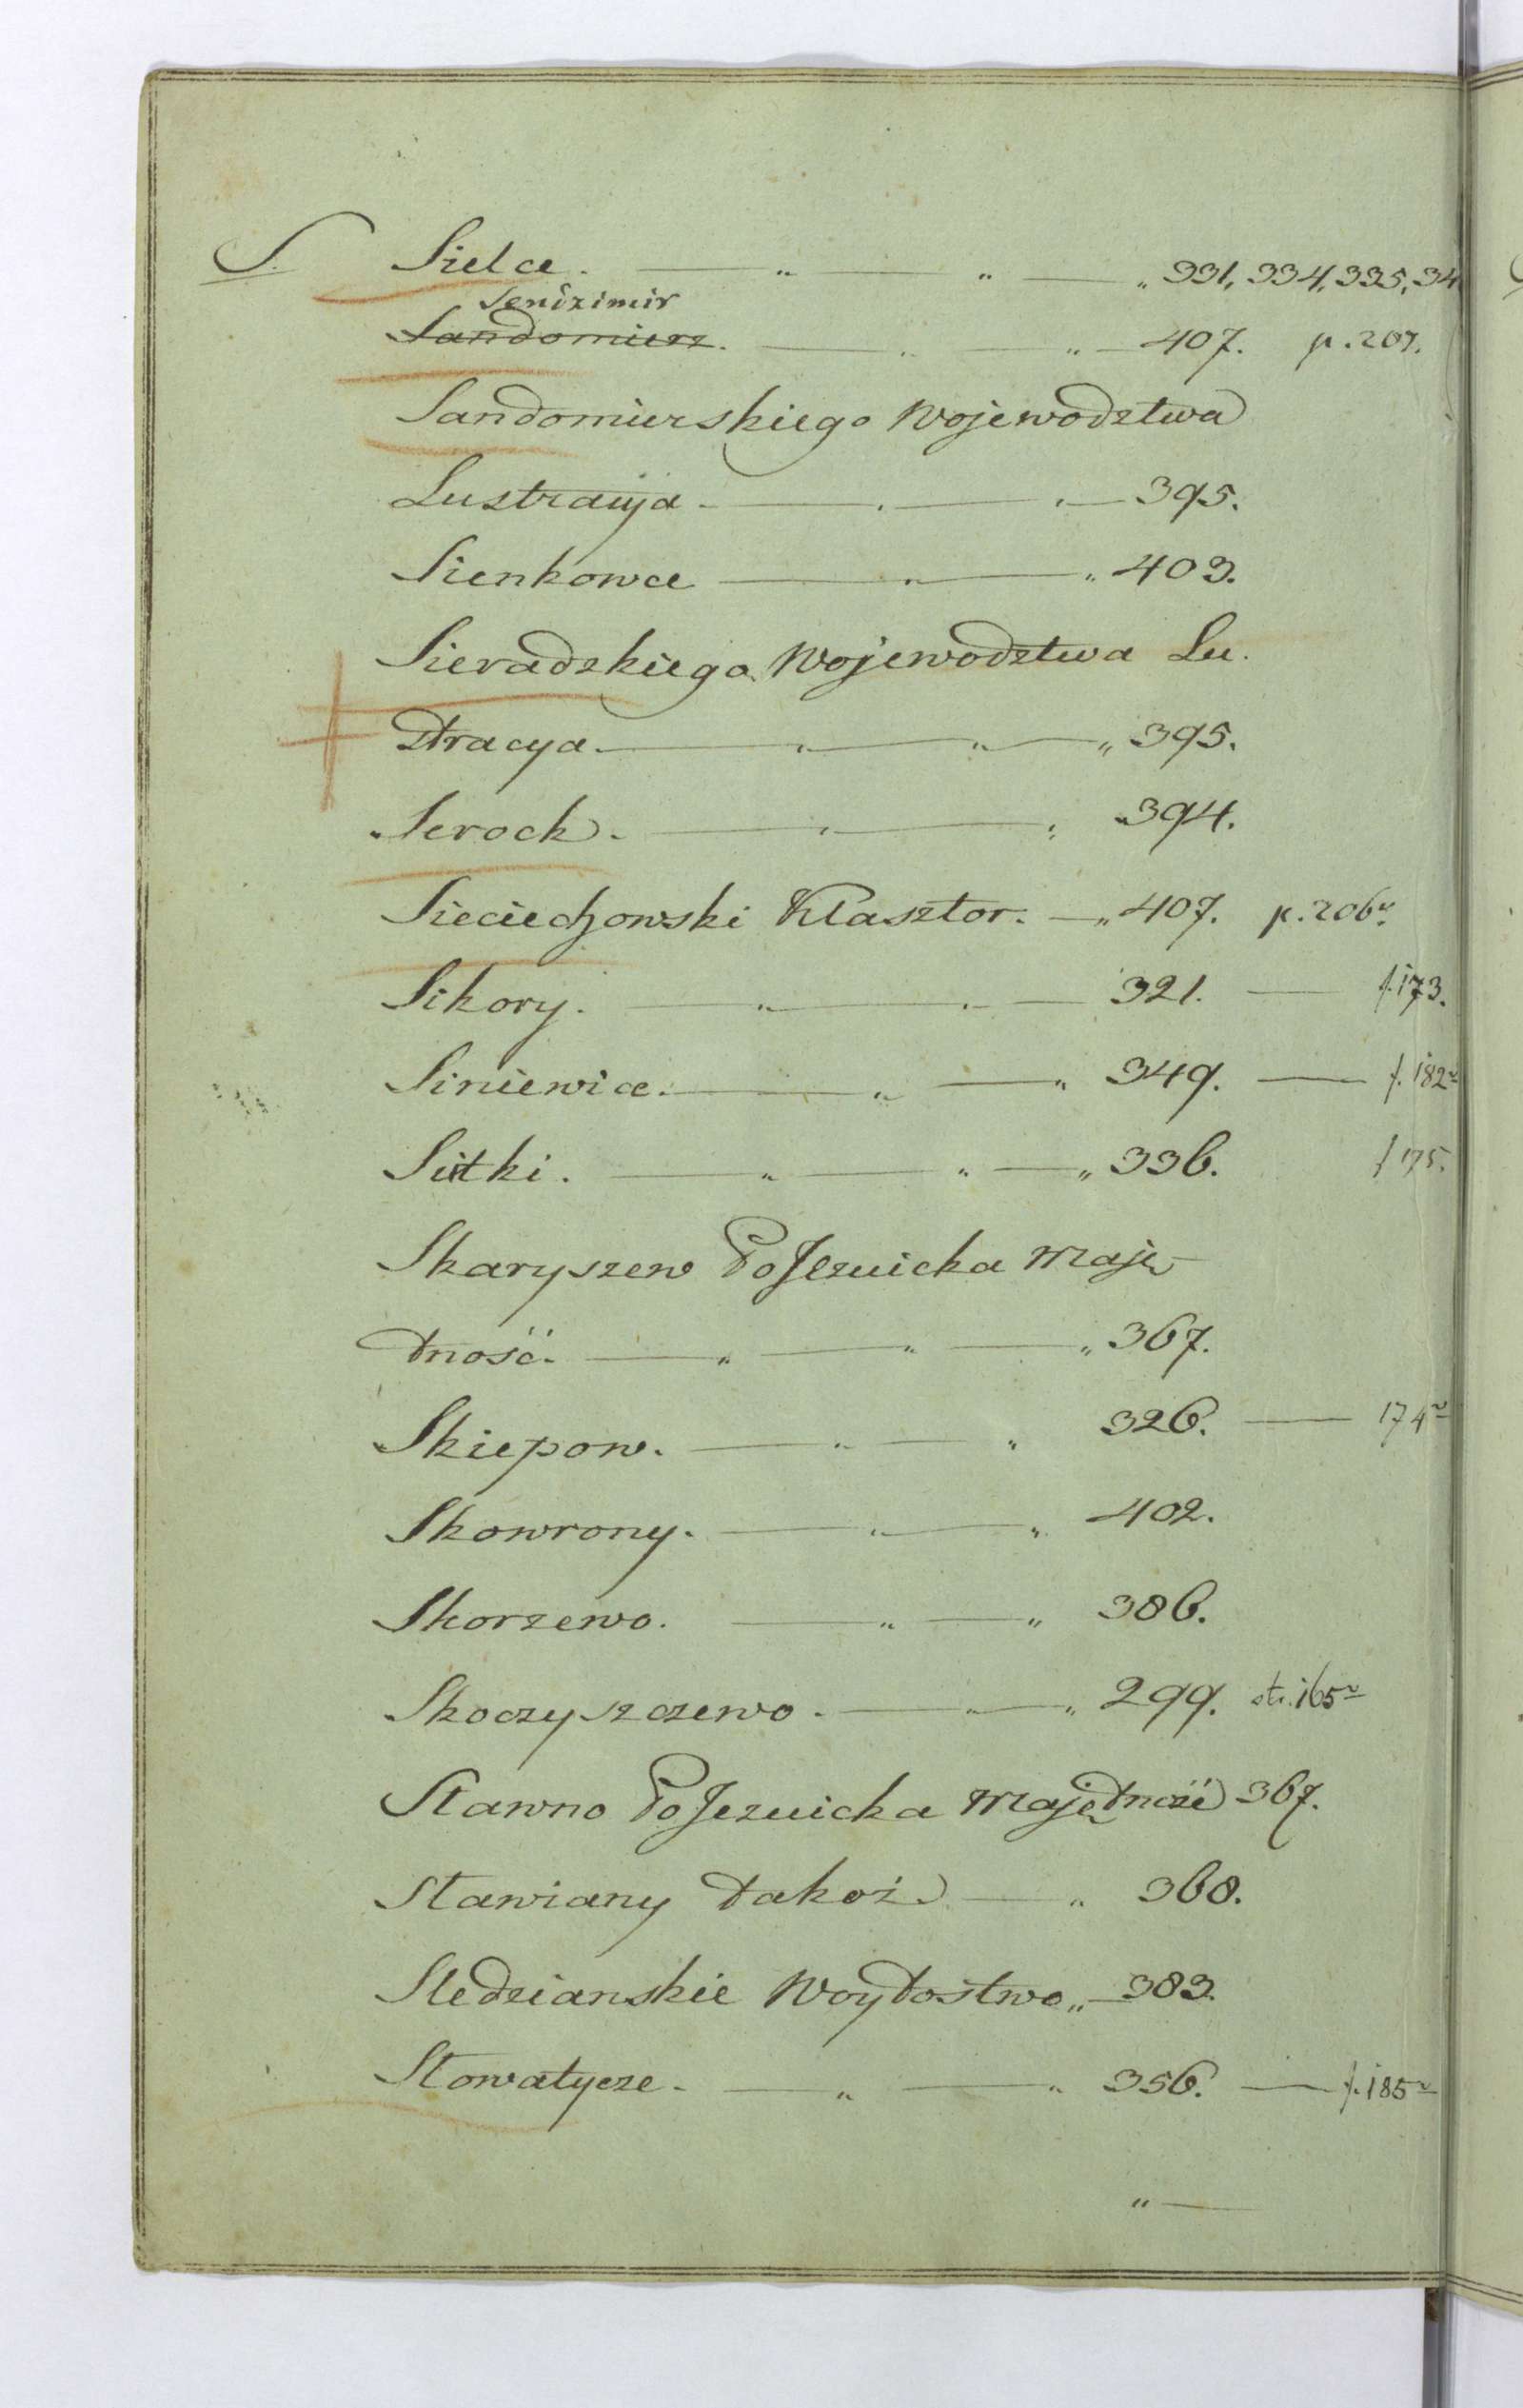 S. Sielce. — „ — „ — „ 331, 334, 335, 34
Sendzimir
Sandomierz. — „ — „ — 407. p. 207.
Sandomierskiego Wojewodztwa
Lustracyja — „ — „ — 395.
Sienkowce — „ — „ 403.
Sieradzkiego Wojewodztwa Lu.
stracya. — „ — „ — „ 395.
Serock. — „ — „ 394.
Sieciechowski Klasztor. — „ 407. p. 206v.
Sikory. — „ — „ — 321. — f. 173.
Siniewice. — „ — „ 349. — f. 182v
Sitki. — „ — „ — „ 336. f 175.
Skaryszew PoJezuicka Maję-
tność. — „ — „ — „ 367.
Skiepow. — „ — „ 326. — 174v
Skowrony. — „ — „ 402.
Skorzewo. — „ — „ 386.
Skoczyszczewo. — „ — „ 299. str. 165v
Sławno PoJezuicka Majętność 367.
Sławiany takoż — „ 368.
Sledzianskie Woytostwo „ — 383.
Sławatycze. — „ — „ 356. — f. 185v
„ —